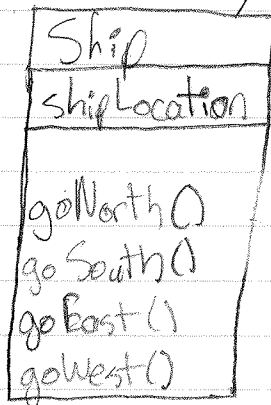 Ship
shipLocation
goNorth()
goSouth()
goEast()
goWest()